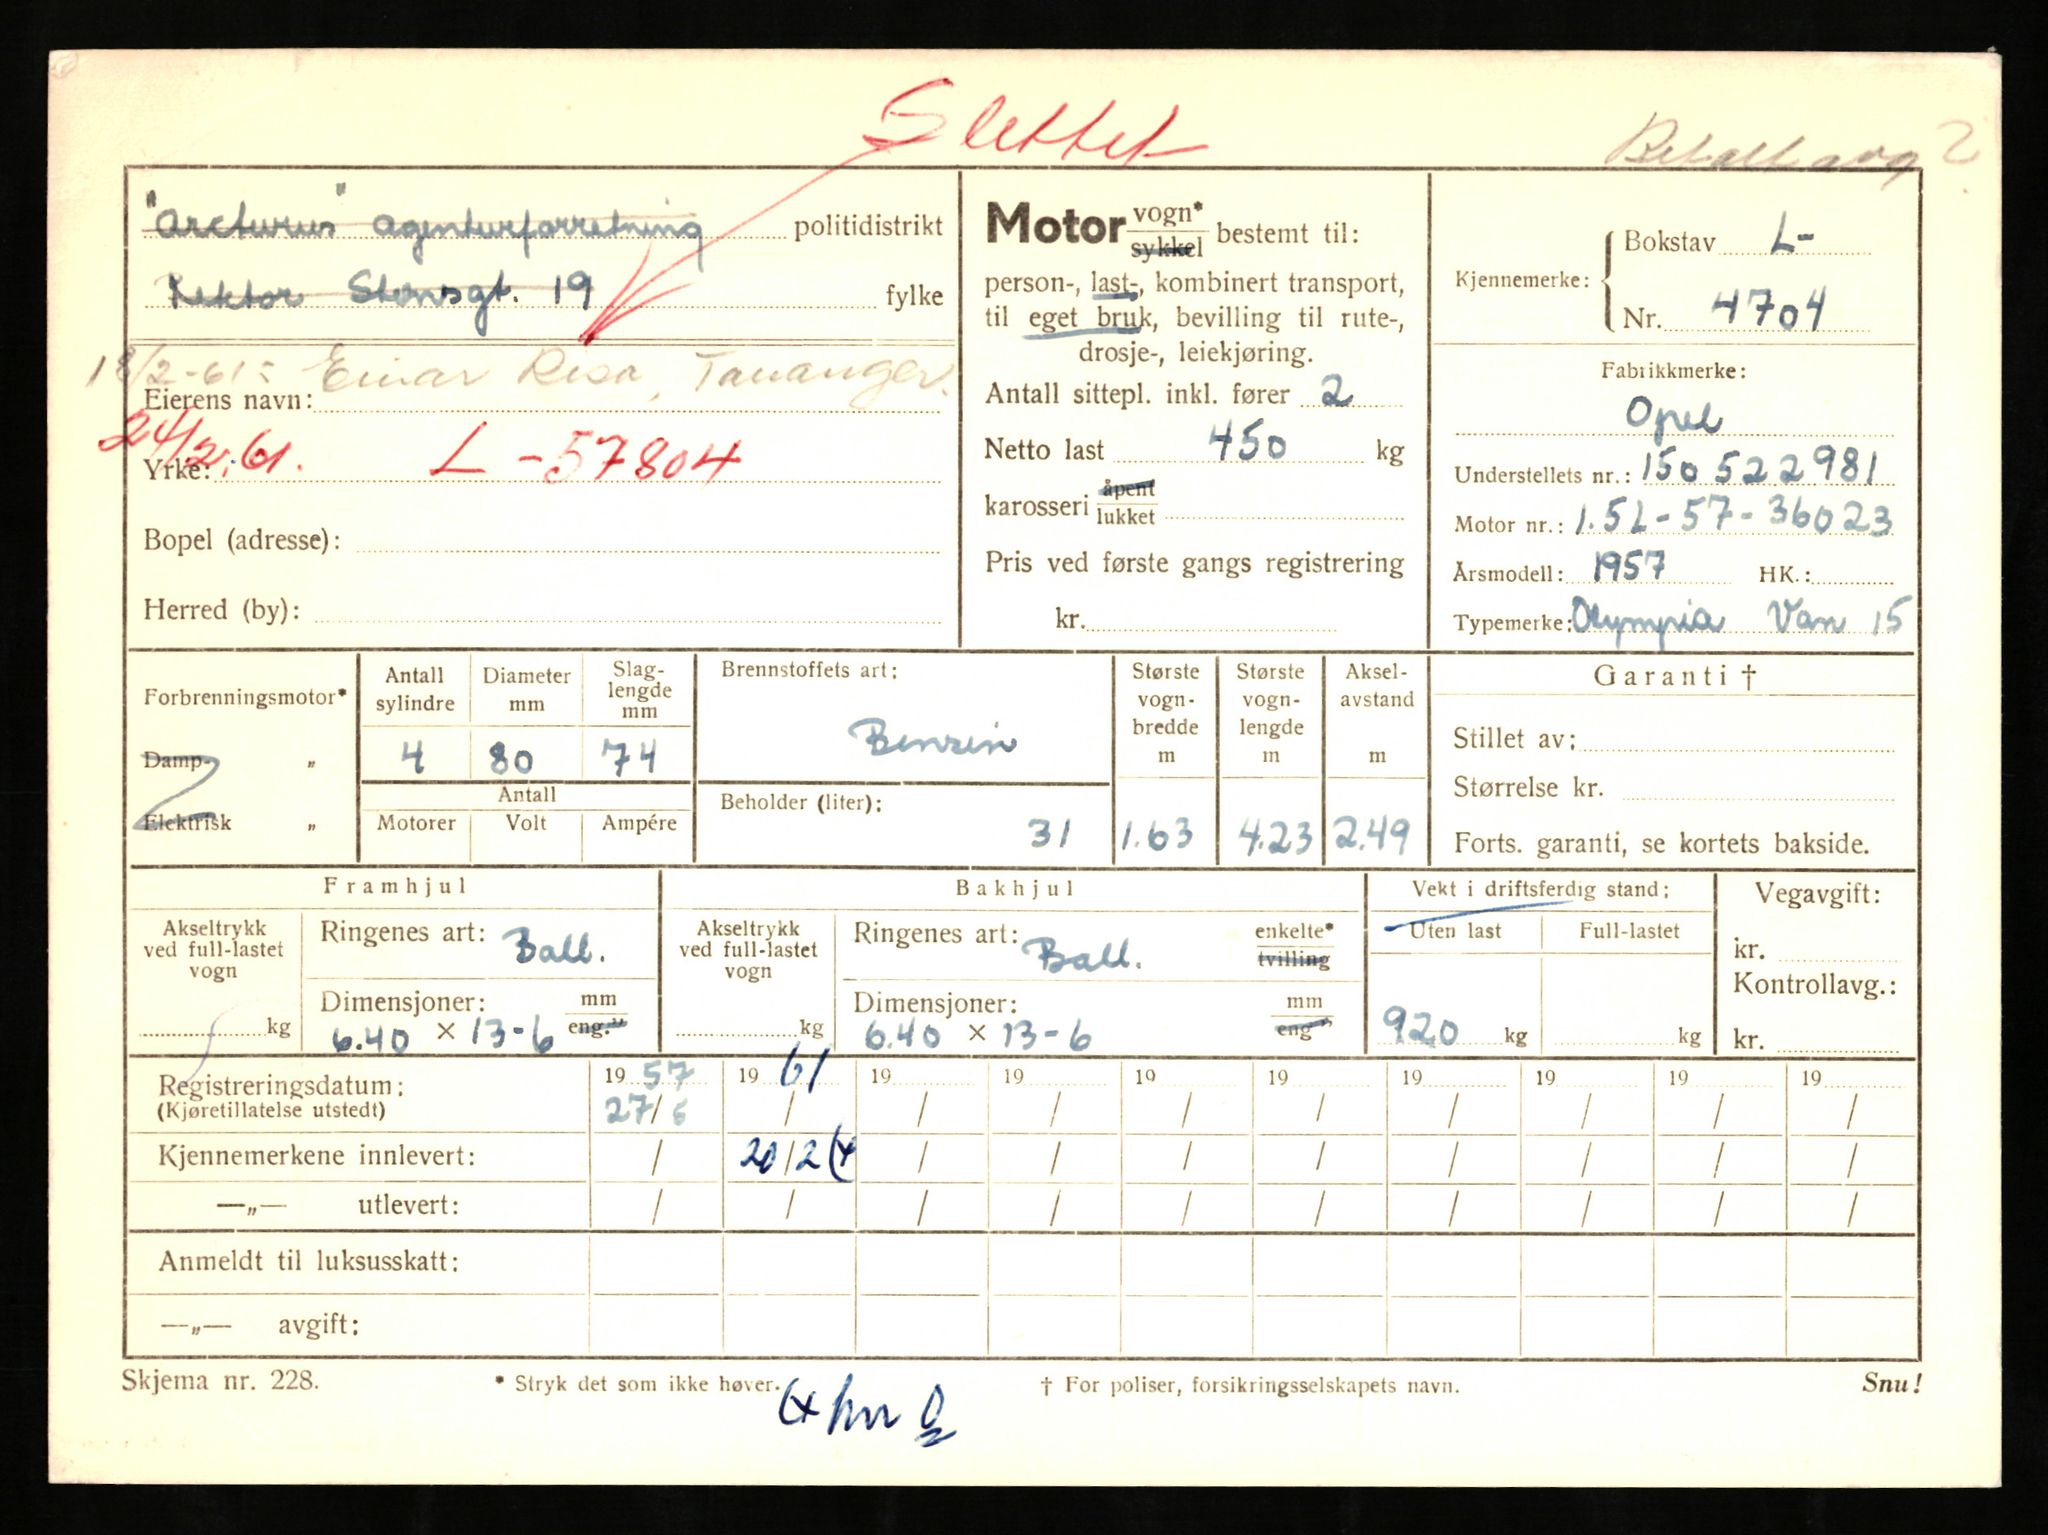 Slettet
Betalt avg
"Arcturus" Agenturforretning politidistrikt
Rektor Stensgt. 19 fylke
18/2-61: Einar Risa, Tananger.
Eierens navn:
24/2.61. L-57804
Yrke:
Bopel (adresse):
Herred (by):
Motor vogn* sykkel bestemt til:
person-, last-, kombinert transport,
til eget bruk, bevilling til rute-,
drosje-, leiekjøring.
Antall sittepl. inkl. fører 2
Netto last 450 kg
karosseri åpent lukket
Pris ved første gangs registrering
kr.
Kjennemerke: Bokstav L-
Nr. 4704
Fabrikkmerke:
Opel
Understellets nr.: 150522981
Motor nr.: 1.5L-57-36023
Årsmodell: 1957 HK.:
Typemerke: Olympia Van 15
Forbrenningsmotor*
Damp- „
Elektrisk „
Antall sylindre
Diameter mm
Slag-lengde mm
4 80 74
Antall
Motorer Volt Ampére
Brennstoffets art:
Benzin
Beholder (liter):
31
Største vogn-bredde m
1.63
Største vogn-lengde m
4.23
Aksel-avstand m
2.49
Garanti †
Stillet av:
Størrelse kr.
Forts. garanti, se kortets bakside.
Framhjul
Akseltrykk ved full-lastet vogn
kg
Ringenes art: Ball.
Dimensjoner: mm eng."
6.40 × 13-6
Bakhjul
Akseltrykk ved full-lastet vogn
kg
Ringenes art: Ball. enkelte* tvilling
Dimensjoner: mm eng"
6.40 × 13-6
Vekt i driftsferdig stand:
Uten last Full-lastet
920 kg kg
Vegavgift:
kr.
Kontrollavg.:
kr.
Registreringsdatum: 19 57 19 61 19 19 19 19 19 19 19 19
(Kjøretillatelse utstedt) 27/6 / / / / / / / / /
Kjennemerkene innlevert: / 20/2 (x / / / / / / / /
—„— utlevert: / / / / / / / / / /
Anmeldt til luksusskatt:
—„— avgift:
Skjema nr. 228. * Stryk det som ikke høver. † For poliser, forsikringsselskapets navn. Snu!